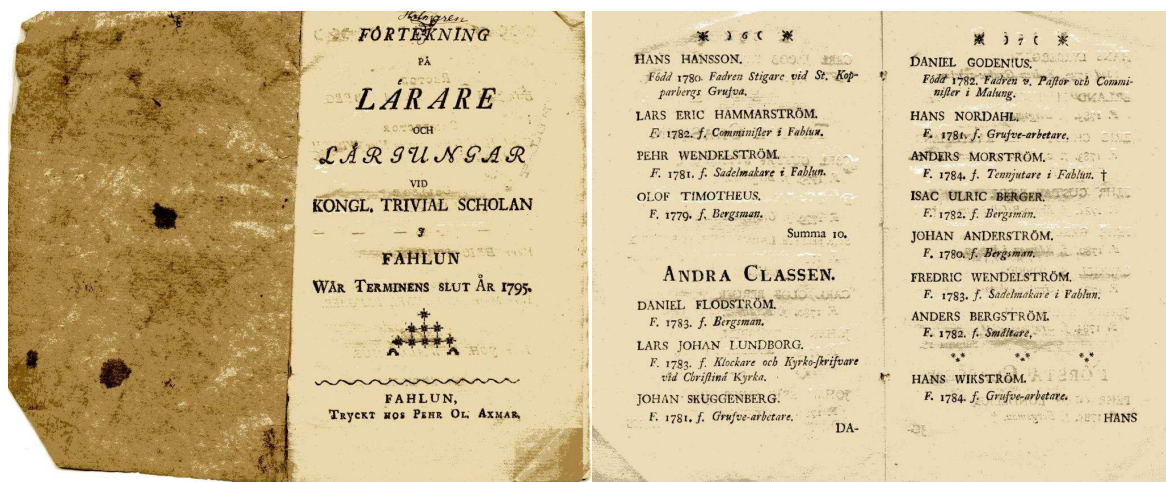 Holmgren
FÖRTEKNING
PÅ
LÄRARE
OCH
LÄRJUNGAR
VID
KONGL. TRIVIAL SCHOLAN
I
FAHLUN
WÅR TERMINENS SLUT ÅR 1795.
FAHLUN,
TRYCKT HOS PEHR OL. AXMAR.
) 6 (
HANS HANSSON.
Född 1780. Fadren Stigare vid St. Kop-
parbergs Grufva.
LARS ERIC HAMMARSTRÖM.
F. 1782. f. Comminister i Fahlun.
PEHR WENDELSTRÖM.
F. 1781. f. Sadelmakare i Fahlun.
OLOF TIMOTHEUS.
F. 1779. f. Bergsman.
Summa 10.
ANDRA CLASSEN.
DANIEL FLODSTRÖM.
F. 1783. f. Bergsman.
LARS JOHAN LUNDBORG.
F. 1783. f. Klockare och Kyrko-skrifvare
vid Christinä Kyrka.
JOHAN SKUGGENBERG.
F. 1781. f. Grufve-arbetare.
DA-
) 7 (
DANIEL GODENIUS.
Född 1782. Fadren v. Pastor och Commi-
nister i Malung.
HANS NORDAHL.
F. 1781. f. Grufve-arbetare.
ANDERS MORSTRÖM.
F. 1784. f. Tenngjutare i Fahlun. †
ISAC ULRIC BERGER.
F. 1782. f. Bergsman.
JOHAN ANDERSTRÖM.
F. 1780. f. Bergsman.
FREDRIC WENDELSTRÖM.
F. 1783. f. Sadelmakare i Fahlun.
ANDERS BERGSTRÖM.
F. 1782. f. Smältare.
HANS WIKSTRÖM.
F. 1784. f. Grufve-arbetare.
HANS